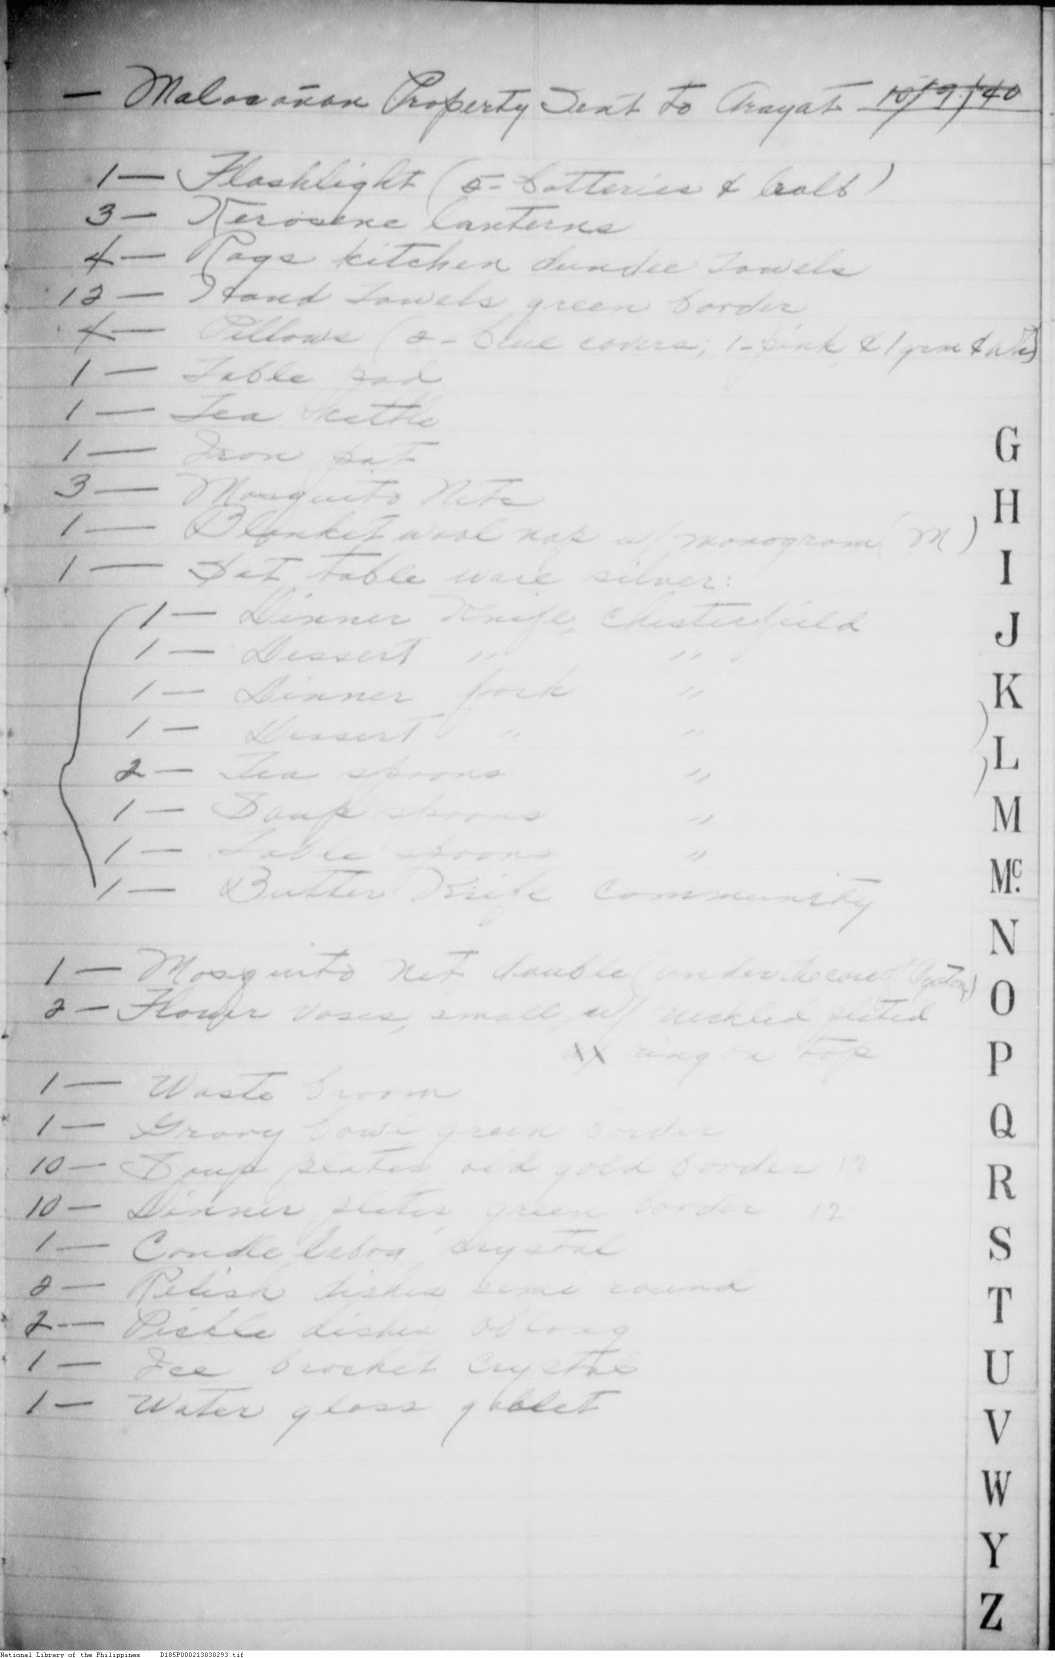 — Malacañan Property Sent to Arayat 10/9/40
1 — Flashlight (5- batteries & bulb)
3 — Kerosene lanterns
4 — Rags kitchen dundee towels
12 — Hand towels green border
4 — Pillows (2- blue covers, 1- pink & 1 grn &
1 — Table pad
1 — Tea Kettle
1 — Iron pot
3 — Mosquito Nets
1 — Blanket wool nap w/ monogram (M)
1 — Set table ware silver:
1 — Dinner Knife, Chesterfield
1 — Dessert " "
1 — Dinner fork "
1 — Dessert " "
2 — Tea spoons "
1 — Soup spoons "
1 — Table spoons "
1 — Butter Knife Community
1 — Mosquito net double (under
2 — Flower vases, small w/ nickled plated
xx ring on top
1 — Waste broom
1 — Gravy bowl green border
10 — Soup plates old gold border 12
10 — Dinner plates green border 12
1 — Candle labra crystal
2 — Relish dishes semi round
2 — Pickle dishes oblong
1 — Ice brocket crystal
1 — Water glass goblet
G
H
I
J
K
L
M
Mc.
N
O
P
Q
R
S
T
U
V
W
Y
Z
National Library of the Philippines D185P000213030293.tif